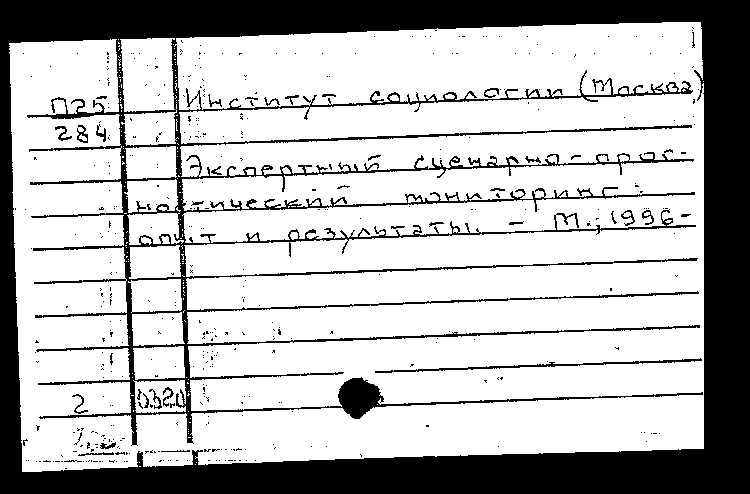 П25 Институт социологии (Москва)
284
Экспертный сценарно-прог-
ностический мониторинг:
опыт и результаты. - М., 1996-
2 0320